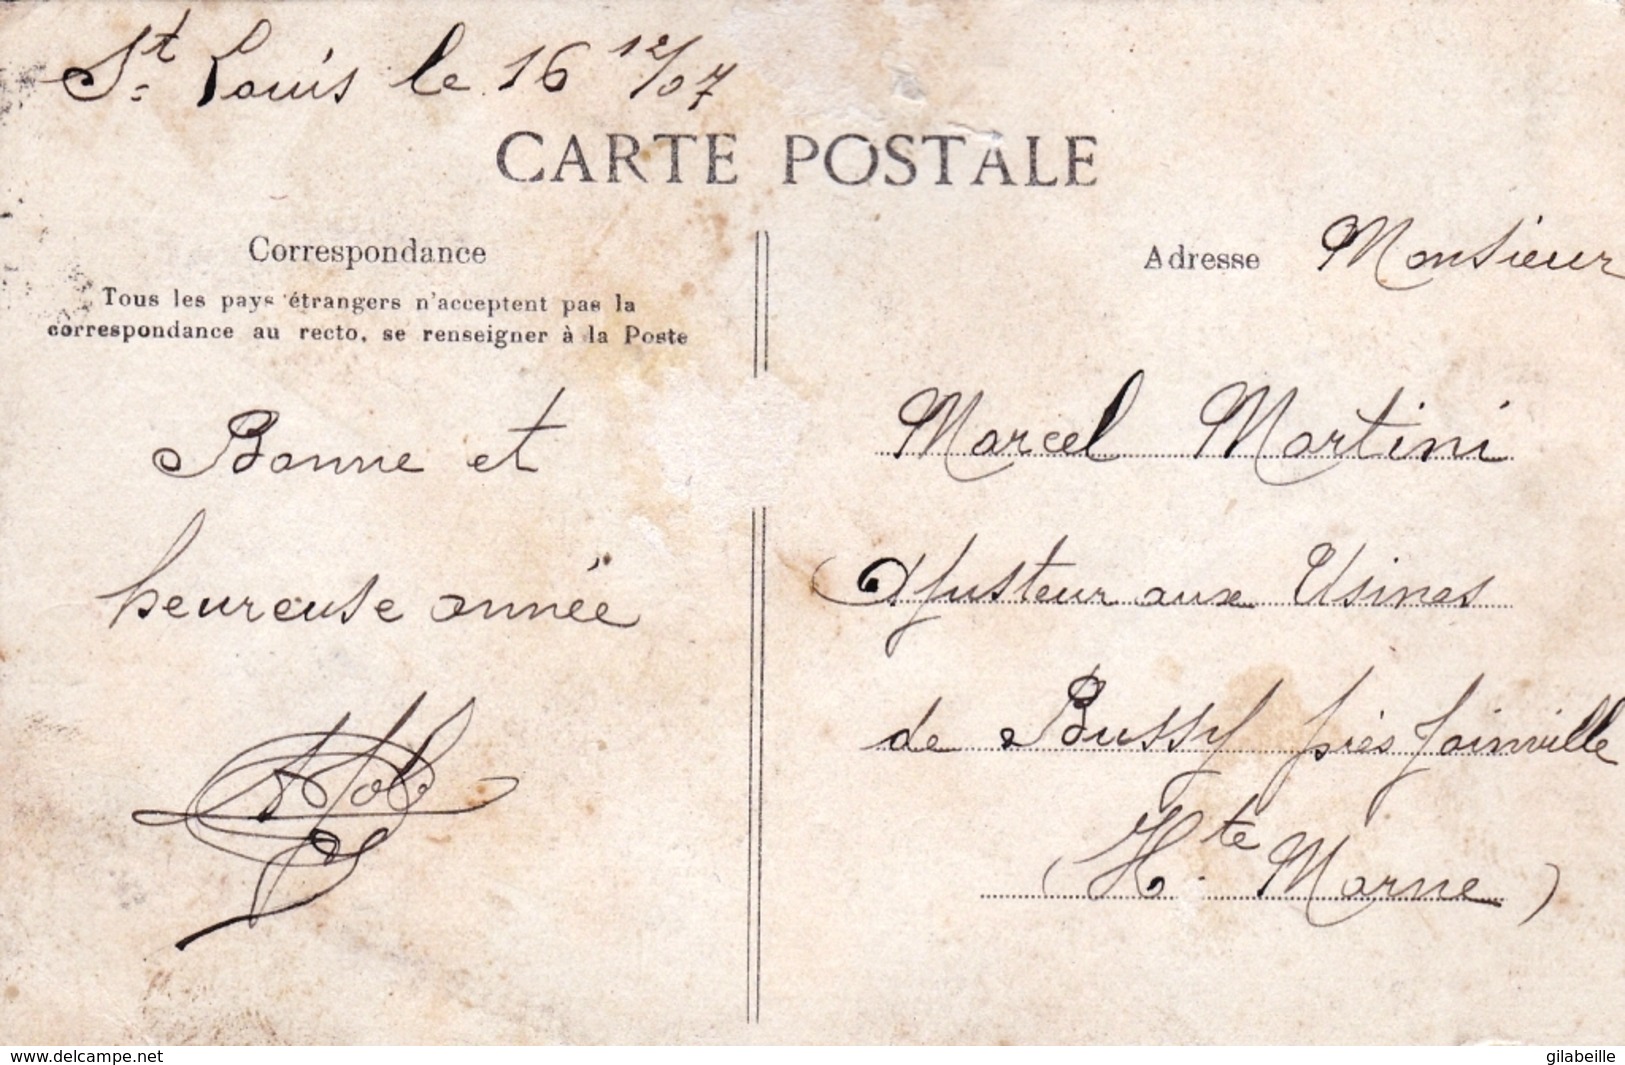 St Louis le 16 12/07
CARTE POSTALE
Correspondance
Tous les pays étrangers n'acceptent pas la
correspondance au recto, se renseigner à la Poste
Bonne et
heureuse année
Adresse Monsieur
Marcel Martini
Ajusteur aux Usines
de Bussy près Joinville
(Hte Marne)
www.delcampe.net
gilabeille